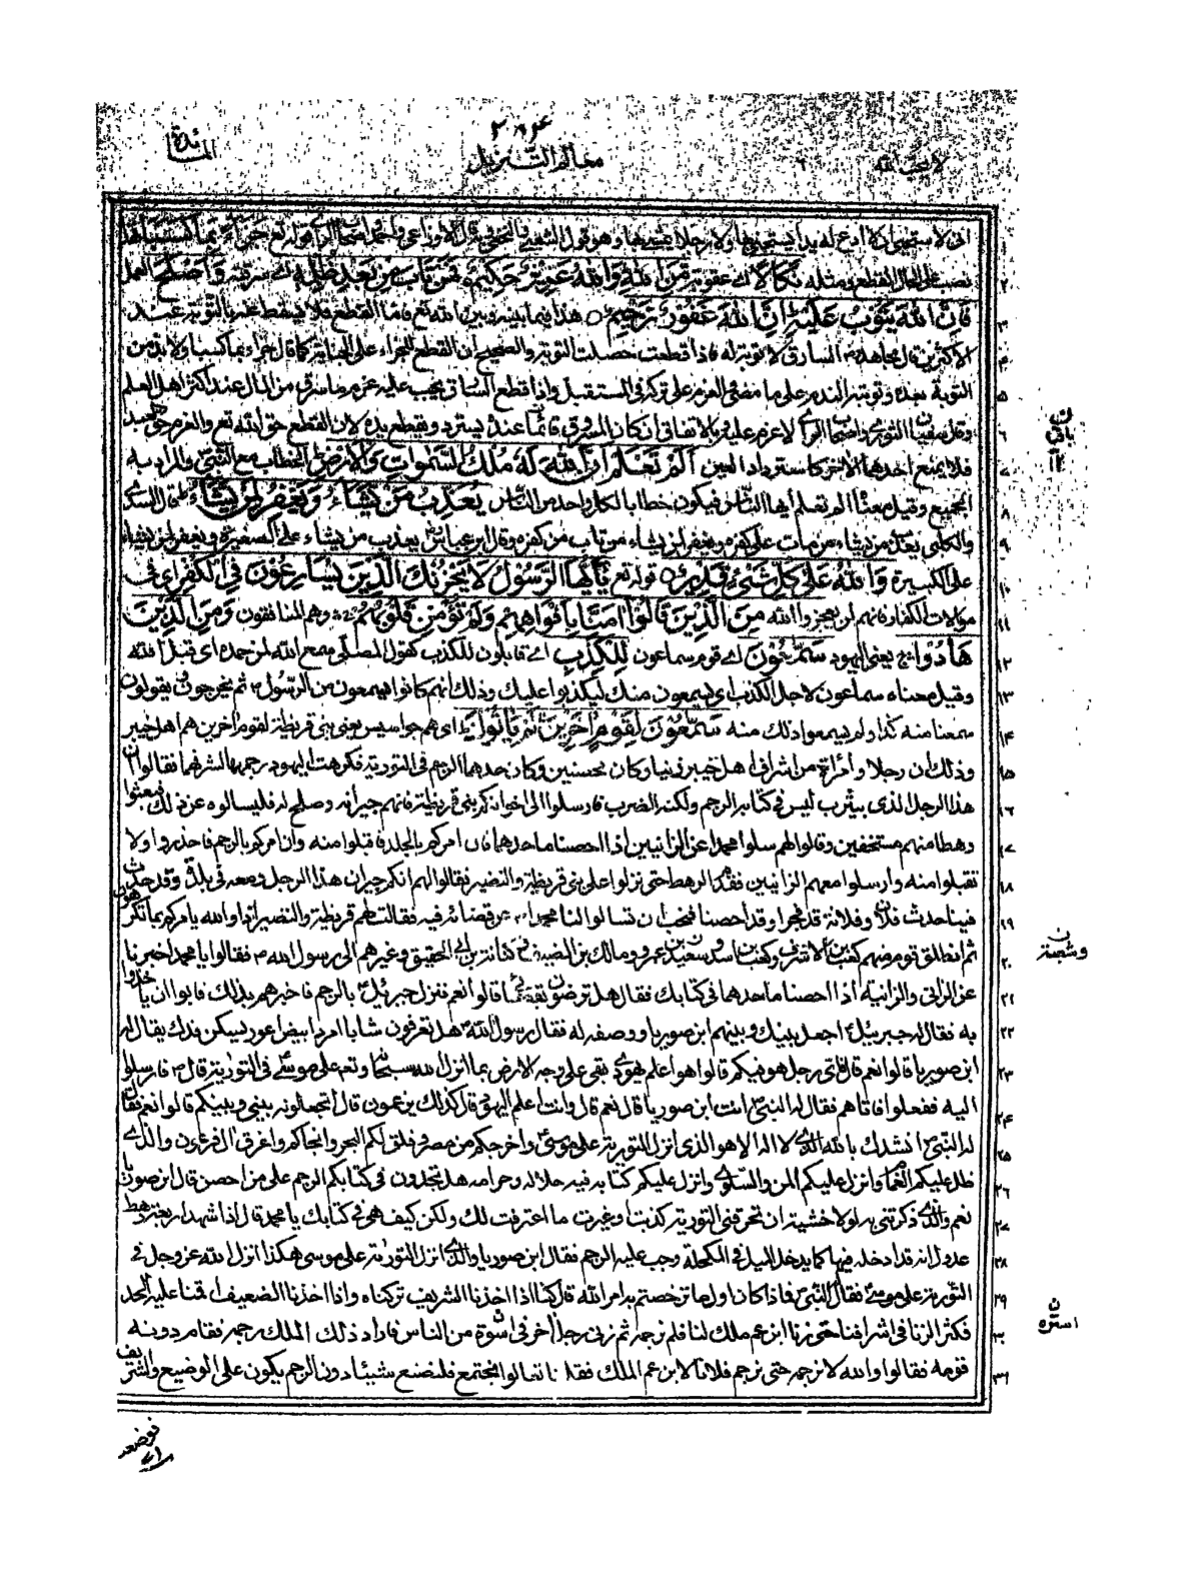 لا يحب الله ٦
٢٨٤
معالم التنزيل
المائدة
انى لاستحيى ان لا ادع له يدا يستنجى بها ولا رجلا يمشى بها وهو قول الشعبى والنخعى وبه قال الاوزاعى واحمد واصحاب الرأى قوله تع جَزَاءً بِمَا كَسَبَا
نصب على الحال للقطع ومثله نَكَالًا اى عقوبة مِّنَ اللهِ وَاللهُ عَزِيْزٌ حَكِيْمٌ فَمَنْ تَابَ مِنْ بَعْدِ ظُلْمِهٖ اى سرقته وَاَصْلَحَ العمل
فَاِنَّ اللهَ يَتُوْبُ عَلَيْهِ اِنَّ اللهَ غَفُوْرٌ رَّحِيْمٌ هذا فيما بينه وبين الله تع فاما القطع فلا يسقط عنه بالتوبة عند
الاكثرين قال مجاهد السارق لا توبة له فاذا قطعت حصلت التوبة والصحيح ان القطع للجزاء على الجناية كما قال جزاء بما كسبا ولا بد من
التوبة بعده وتوبته الندم على ما مضى والعزم على تركه فى المستقبل واذا قطع السارق يجب عليه غرم ما سرق من المال عند اكثر اهل العلم
وقال سفيان الثورى واصحاب الرأى لا غرم عليه وبالاتفاق ان كان المسروق قائما عنده يسترد ويقطع يده لان القطع حق الله تع والغرم حق العبد
فلا يمنع احدهما الاخر كاسترداد العين اَلَمْ تَعْلَمْ اَنَّ اللهَ لَهٗ مُلْكُ السَّمٰوٰتِ وَالْاَرْضِ الخطاب مع النبى والمراد به
الجميع وقيل معناه الم تعلم ايها الناس فيكون خطابا لكل واحد من الناس يُعَذِّبُ مَنْ يَّشَاءُ وَيَغْفِرُ لِمَنْ يَّشَاءُ قال السدى
والكلبى يعذب من يشاء من مات على كفره ويغفر لمن يشاء من تاب من كفره وقال ابن عباس يعذب من يشاء على الصغيرة ويغفر لمن يشاء
على الكبيرة وَاللهُ عَلٰى كُلِّ شَىْءٍ قَدِيْرٌ قوله تع يٰاَيُّهَا الرَّسُوْلُ لَا يَحْزُنْكَ الَّذِيْنَ يُسَارِعُوْنَ فِى الْكُفْرِ اى فى
موالات الكفار فانهم لن يعجزوا الله مِنَ الَّذِيْنَ قَالُوْا اٰمَنَّا بِاَفْوَاهِهِمْ وَلَمْ تُؤْمِنْ قُلُوْبُهُمْ وهم المنافقون وَمِنَ الَّذِيْنَ
هَادُوْا يعنى اليهود سَمّٰعُوْنَ اى قوم سماعون لِلْكَذِبِ اى قابلون للكذب كقول المصلى سمع الله لمن حمده اى قبل الله
وقيل معناه سماعون لاجل الكذب اى يسمعون منك ليكذبوا عليك وذلك انهم كانوا يسمعون من الرسول ثم يخرجون ويقولون
سمعنا منه كذا ولم يسمعوا ذلك منه سَمّٰعُوْنَ لِقَوْمٍ اٰخَرِيْنَ لَمْ يَاْتُوْكَ اى هم جواسيس يعنى بنى قريظة لقوم اخرين هم اهل خيبر
وذلك ان رجلا وامرأة من اشراف اهل خيبر زنيا وكانا محصنين وكان حدهما الرجم فى التوراة فكرهت اليهود رجمهما لشرفهما فقالوا ان
هذا الرجل الذى بيثرب ليس فى كتابه الرجم ولكنه الضرب فارسلوا الى اخوانكم بنى قريظة فانهم جيرانه وصلح له فليسالوه عن ذلك فبعثوا
رهطا منهم مستخفين وقالوا لهم سلوا محمدا عن الزانيين اذا احصنا ما حدهما فان امركم بالجلد فاقبلوا منه وان امركم بالرجم فاحذروا ولا
تقبلوا منه وارسلوا معهم الزانيين فقدم الرهط حتى نزلوا على بنى قريظة والنضير فقالوا لهم انكم جيران هذا الرجل ومعه فى بلده وقد حدث
فينا حدث فلان وفلانة قد فجرا وقد احصنا فنحب ان تسالوا لنا محمدا عن قضائه فيه فقالت لهم قريظة والنضير اذا والله يامركم بما تكرهون
ثم انطلق قوم منهم كعب بن الاشرف وكعب بن اسد وسعيد بن عمرو ومالك بن الصيف وكنانة بن ابى الحقيق وغيرهم الى رسول الله فقالوا يا محمد اخبرنا
عن الزانى والزانية اذا احصنا ما حدهما فى كتابك فقال هل ترضون بقضائى قالوا نعم فنزل جبرئيل بالرجم فاخبرهم بذلك فابوا ان ياخذوا
به فقال له جبرئيل اجعل بينك وبينهم ابن صوريا ووصفه له فقال رسول الله هل تعرفون شابا امرد ابيض اعور يسكن فدك يقال له
ابن صوريا قالوا نعم قال فاى رجل هو فيكم قالوا هو اعلم يهودى بقى على وجه الارض بما انزل الله سبحانه وتع على موسى فى التوراة قال فارسلوا
اليه ففعلوا فاتاهم فقال له النبى انت ابن صوريا قال نعم قال وانت اعلم اليهود قال كذلك يزعمون قال اتجعلونه بينى وبينكم قالوا نعم فقال
له النبى انشدك بالله الذى لا اله الا هو الذى انزل التوراة على موسى واخرجكم من مصر وفلق لكم البحر وانجاكم واغرق ال فرعون والذى
ظلل عليكم الغمام وانزل عليكم المن والسلوى وانزل عليكم كتابه فيه حلاله وحرامه هل تجدون فى كتابكم الرجم على من احصن قال ابن صوريا
نعم والذى ذكرتنى به لولا خشية ان تحرقنى التوراة ان كذبت او غيرت ما اعترفت لك ولكن كيف هى فى كتابك يا محمد قال اذا شهد اربعة رهط
عدول انه قد ادخله فيها كما يدخل الميل فى المكحلة وجب عليه الرجم فقال ابن صوريا والذى انزل التوراة على موسى هكذا انزل الله عز وجل فى
التوراة على موسى فقال النبى فماذا كان اول ما ترخصتم به امر الله قال كنا اذا اخذنا الشريف تركناه واذا اخذنا الضعيف اقمنا عليه الحد
فكثر الزنا فى اشرافنا حتى زنا ابن عم ملك لنا فلم نرجمه ثم زنى رجل اخر فى اسوة من الناس فاراد ذلك الملك رجمه فقام دونه
قومه فقالوا والله لا ترجمه حتى ترجم فلانا لابن عم الملك فقلنا تعالوا نجتمع فلنضع شيئا دون الرجم يكون على الوضيع والشريف
ن
باقى
ن
ن
اسرة
فوضعنا